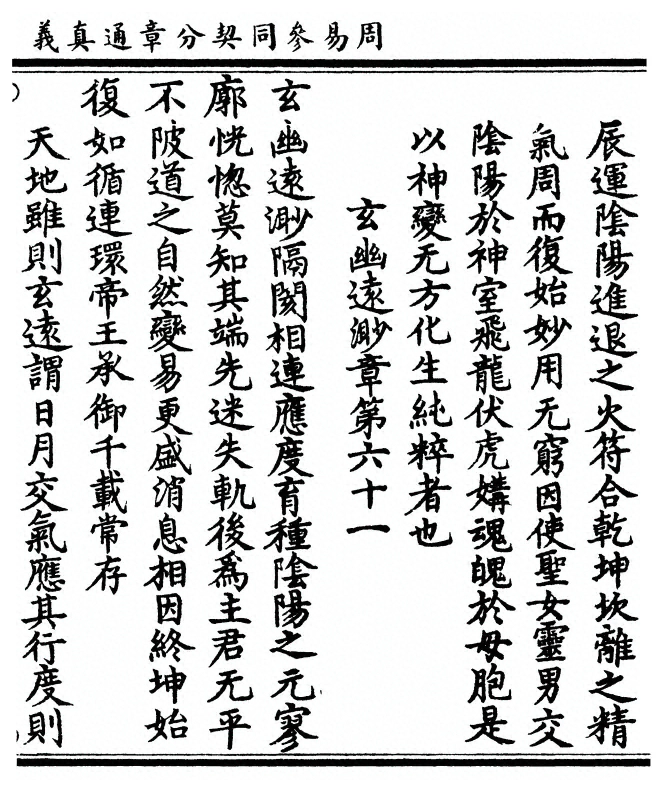 周易參同契分章通真義
辰運陰陽進退之火符合乾坤坎離之精
氣周而復始妙用无窮因使聖女靈男交
陰陽於神室飛龍伏虎媾魂魄於母胞是
以神變无方化生純粹者也
玄幽遠渺章第六十一
玄幽遠渺隔閡相連應度育種陰陽之元寥
廓恍惚莫知其端先迷失軌後爲主君无平
不陂道之自然變易更盛消息相因終坤始
復如循連環帝王承御千載常存
天地雖則玄遠謂日月交氣應其行度則